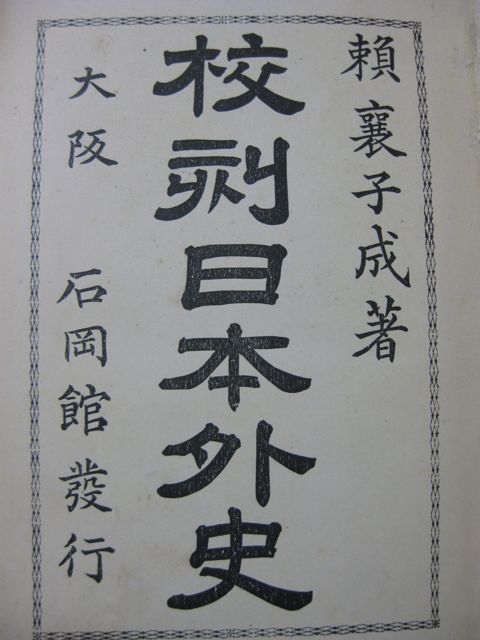 賴襄子成著
校刻日本外史
大阪 石岡館發行